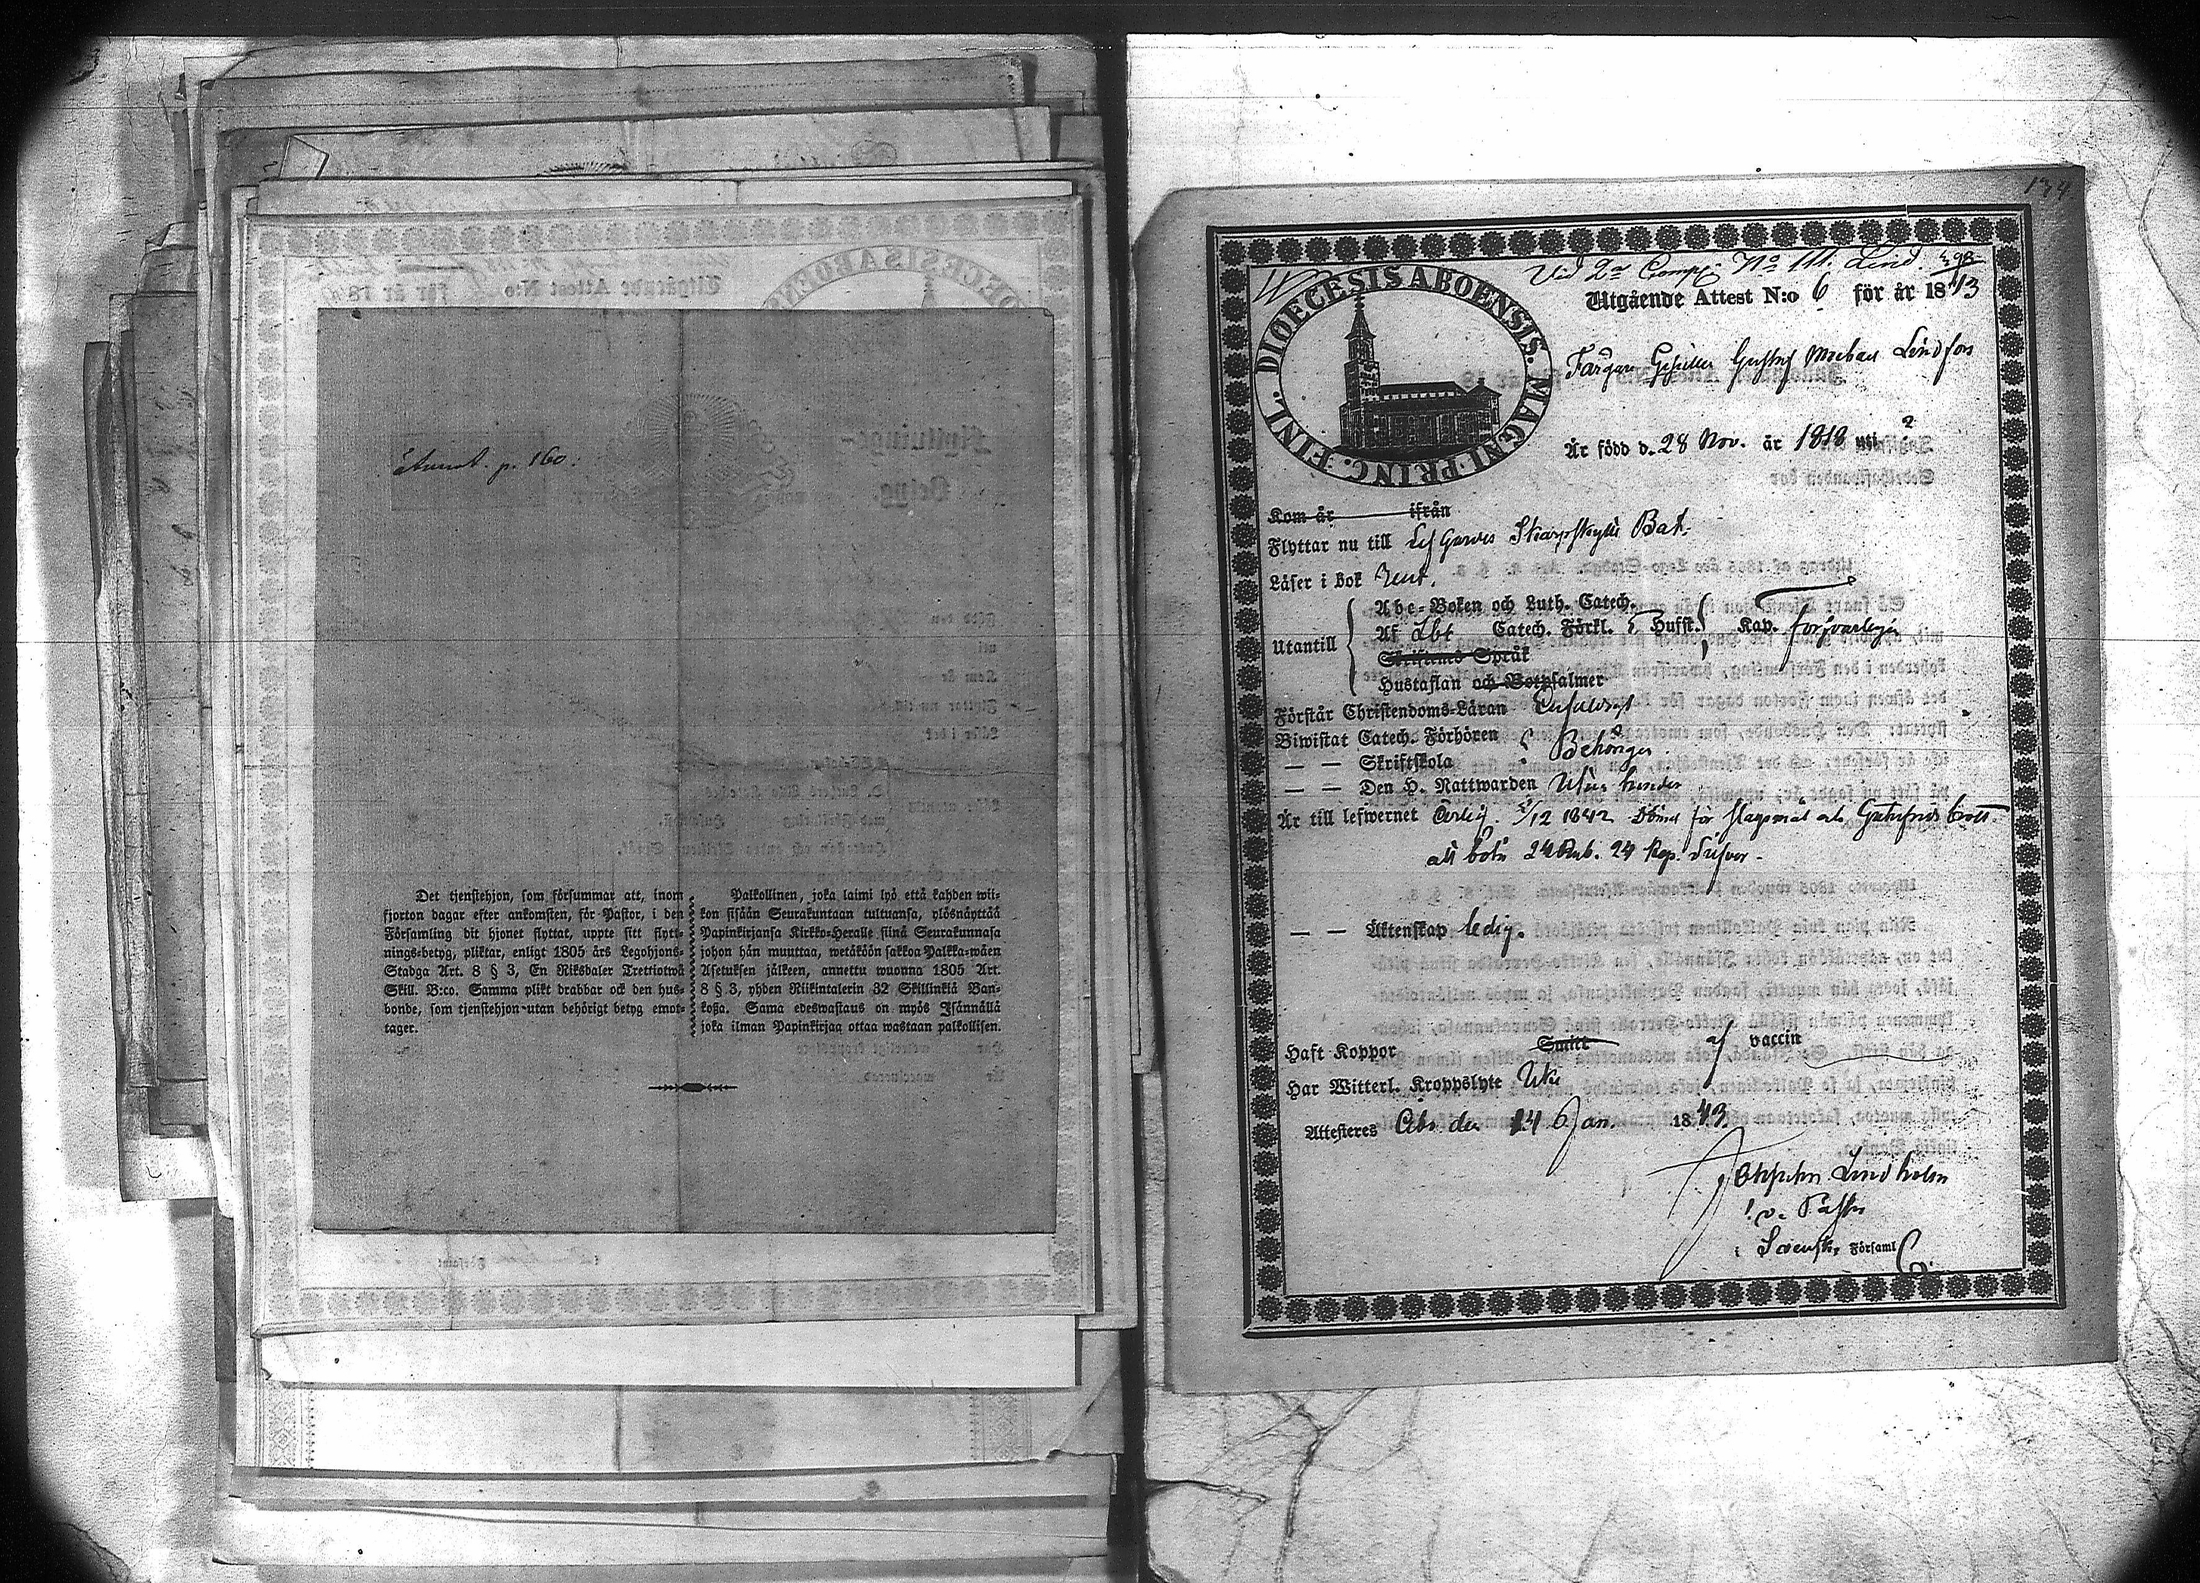 Annot. p. 160.
Det tjenstehjon, som försummar att, inom
fjorton dagar efter ankomsten, för Pastor, i den
Församling dit hjonet flyttat, uppte sitt flytt-
nings-betyg, pliktar, enligt 1805 års Legohjons-
Stadga Art. 8 § 3, En Riksdaler Trettiotwå
Skill. B:co. Samma plikt drabbar ock den hus-
bonde, som tjenstehjon utan behörigt betyg emot-
tager.
Palkollinen, joka laimi lyö että kahden wii-
kon sisään Seurakuntaan tultuansa, ylösnäyttää
Papinkirjansa Kirkko-Heralle siinä Seurakunnasa
johon hän muuttaa, wetäköön sakkoa Palkka-wäen
Asetuksen jälkeen, annettu wuonna 1805 Art.
8 § 3, yhden Riikintalerin 32 Skillinkiä Ban-
koßa. Sama edeswastaus on myös Isännällä
joka ilman Papinkirjaa ottaa wastaan palkollisen.
134
Vid 2:a Comp. No 111. Lind.
Utgående Attest N:o 6 för år 1843
DIOECESIS ABOENSIS. MAGNI PRINC. FINL.
Färgare Gesällen Gustaf Lindfors
Är född d. 28 Nov. år 1818 uti ?
Kom år ifrån
Flyttar nu till Lif Gardes Skarpskytte Bat.
Läser i bok Rent.
Abc-Boken och Luth. Catech.
Utantill
Af Lbt Catech. Förkl. Husst. Kap. försvarligen
Skriftens Språk
Hustaflan och Botpsalmer
Förstår Christendoms-Läran
Biwistat Catech. Förhören
— — Skriftskola Behörigen
— — Den H. Nattwarden Utan hinder
Är till lefwernet Ärlig. 3/12 1842 Dömd för slagsmål och
att böta 24 Rub. 24 Kop. Silfver.
— — Äktenskap ledig.
Haft Koppor Smitt af vaccin
Har Witterl. Kroppslyte Icke
Attesteres Åbo den 14 Jan. 1843.
Lindholm
v. Pastor
i Svenska Församl